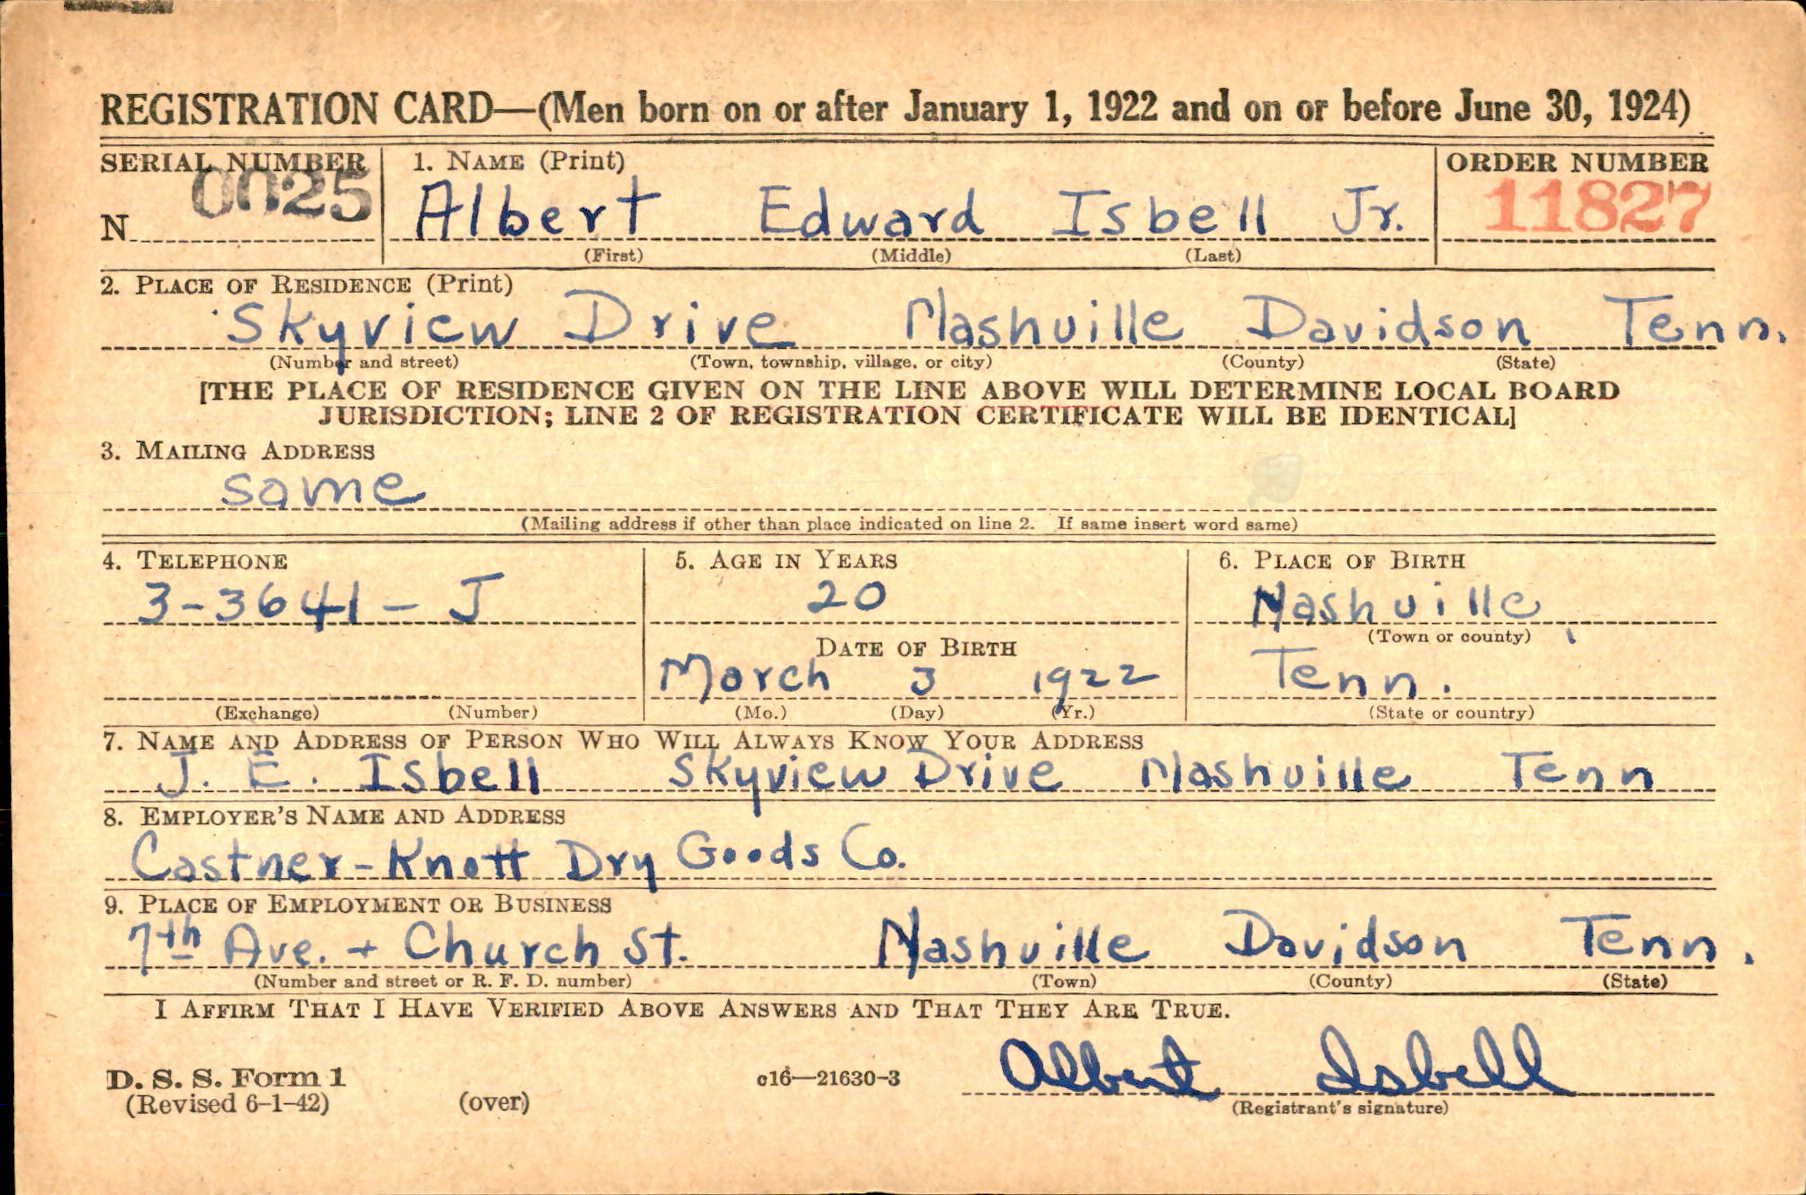 REGISTRATION CARD—(Men born on or after January 1, 1922 and on or before June 30, 1924)
SERIAL NUMBER 1. NAME (Print) ORDER NUMBER
N 0025 Albert Edward Isbell Jr. 11827
(First) (Middle) (Last)
2. PLACE OF RESIDENCE (Print)
Skyview Drive Nashville Davidson Tenn.
(Number and street) (Town, township, village, or city) (County) (State)
[THE PLACE OF RESIDENCE GIVEN ON THE LINE ABOVE WILL DETERMINE LOCAL BOARD
JURISDICTION; LINE 2 OF REGISTRATION CERTIFICATE WILL BE IDENTICAL]
3. MAILING ADDRESS
same
(Mailing address if other than place indicated on line 2. If same insert word same)
4. TELEPHONE 5. AGE IN YEARS 6. PLACE OF BIRTH
3-3641-J 20 Nashville,
DATE OF BIRTH (Town or county)
March 3 1922 Tenn.
(Exchange) (Number) (Mo.) (Day) (Yr.) (State or country)
7. NAME AND ADDRESS OF PERSON WHO WILL ALWAYS KNOW YOUR ADDRESS
J. E. Isbell Skyview Drive Nashville Tenn
8. EMPLOYER'S NAME AND ADDRESS
Castner-Knott Dry Goods Co.
9. PLACE OF EMPLOYMENT OR BUSINESS
7th Ave. + Church St. Nashville Davidson Tenn.
(Number and street or R. F. D. number) (Town) (County) (State)
I AFFIRM THAT I HAVE VERIFIED ABOVE ANSWERS AND THAT THEY ARE TRUE.
D. S. S. Form 1 c16—21630-3 Albert Isbell
(Revised 6-1-42) (over) (Registrant's signature)